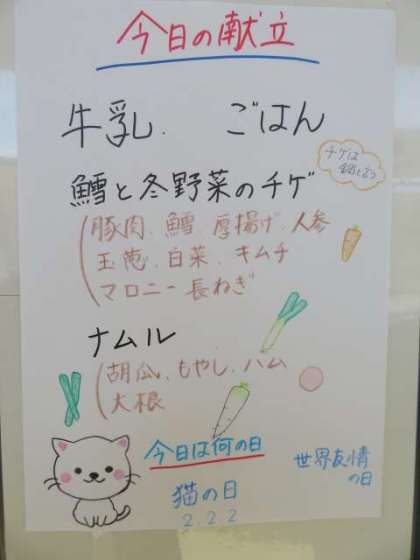 今日の献立
牛乳. ごはん
チゲは
鍋と言う
鱈と冬野菜のチゲ
(豚肉、鱈 厚揚げ、人参
玉葱、白菜、キムチ
マロニー 長ねぎ
ナムル
(胡瓜、もやし、ハム
大根
今日は何の日
猫の日
2.22
世界友情
の日